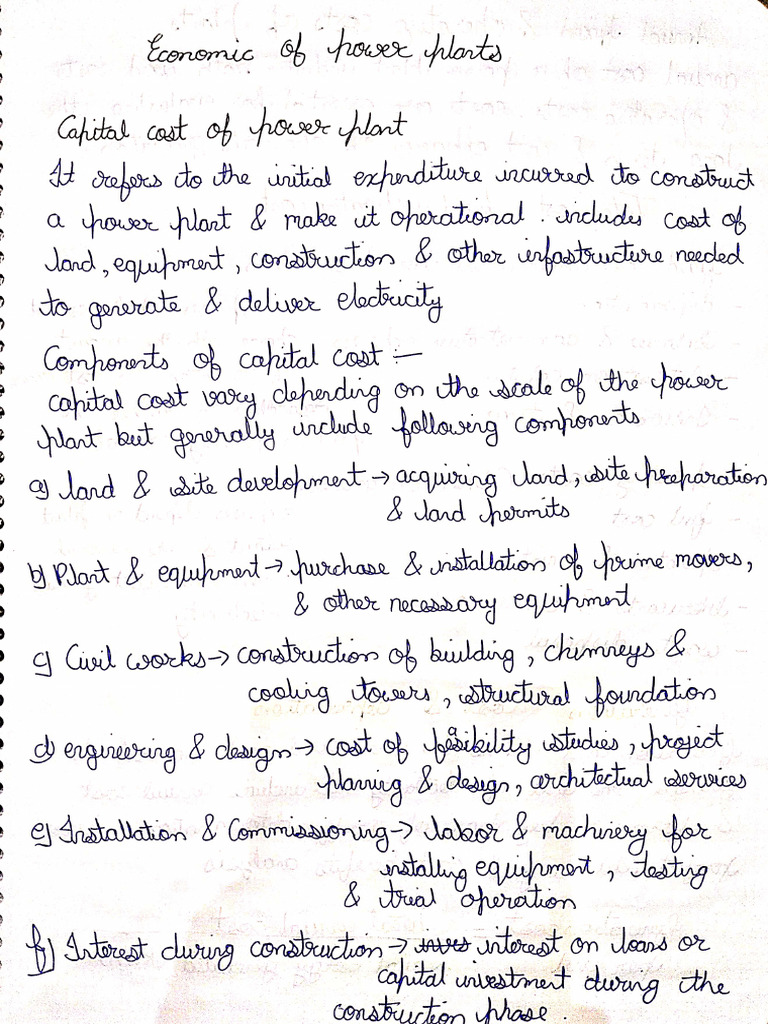 Economic of power plants
Capital cost of power plant
It refers to the initial expenditure incurred to construct
a power plant & make it operational. includes cost of
land, equipment, construction & other infastructure needed
to generate & deliver electricity
Components of capital cost :-
capital cost vary depending on the scale of the power
plant but generally include following components
a) land & site development → acquiring land, site preparation
& land permits
b) Plant & equipment → purchase & installation of prime movers,
& other necessary equipment
c) Civil works → construction of building, chimneys &
cooling towers, structural foundation
d) engineering & design → cost of fesibility studies, project
planing & design, architectual services
e) Installation & Commissioning → labor & machinery for
installing equipment, testing
& trial operation
f) Interest during construction → interest on loans or
capital investment during the
construction phase.